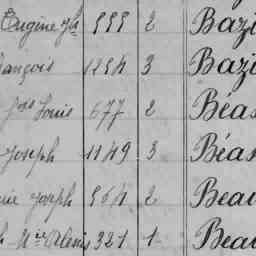 Eugène Jh 555 2 Bazi
ançois 1254 3 Bazi
Jh Louis 677 2 Béas
Joseph 1149 3 Béas
Joseph 564 2 Beau
Alexis 321 1 Beau